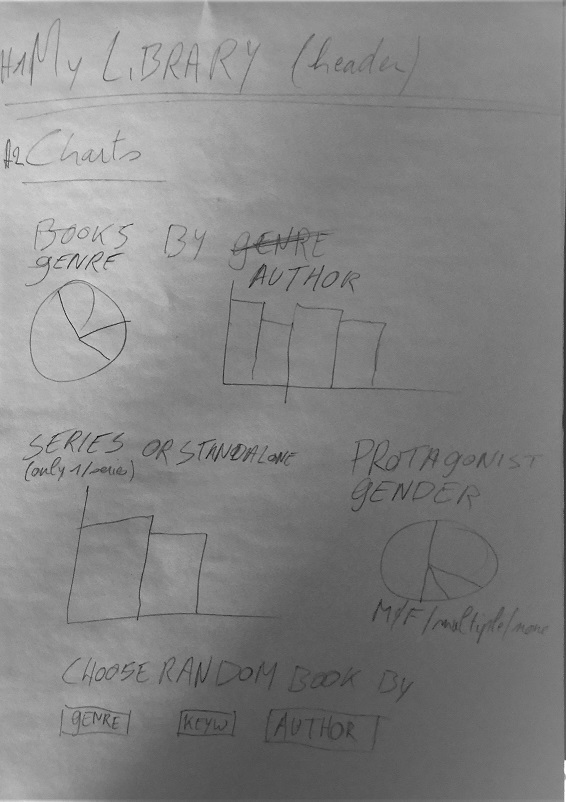 H1 My LiBRARY (header)
H2 Charts
BOOKS BY GENRE
GENRE
AUTHOR
SERIES OR STANDALONE
(only 1/series)
PROTAGONIST
GENDER
M/F/multiple/none
CHOOSE RANDOM BOOK By
GENRE KEYW AUTHOR